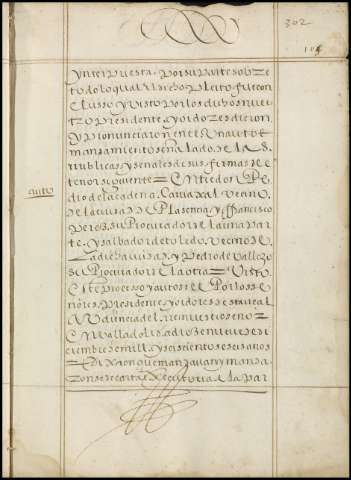 302
104
ynterpuesta Por su parte sobre
todo lo qual el dicho Pleito fue con
cluso y Visto Por los dichos nues
tro Presidente y oidores dieron
y Pronunciaron en el Un auto e
mandamiento señalado de las
rrubricas y señales de sus firmas de el
tenor siguiente = Entre don Pe
dro de la cadena Carvajal Vecino
de la ciudad de Plasencia y francisco
Perez su Procurador de la una Par
te y salbador de toledo Vecino de
la dicha ciudad y Pedro de Vallejo
su Procurador de la otra = Visto
Este Proceso y autos de el Por los se
ñores Presidente y oidores de la real
Audiencia del rrei nuestro señor
En Valladolid a diez e nueve de di
ciembre de mill y seiscientos e seis años
= Dixeron que mandavan y manda
ron se de carta executoria a la Par
auto